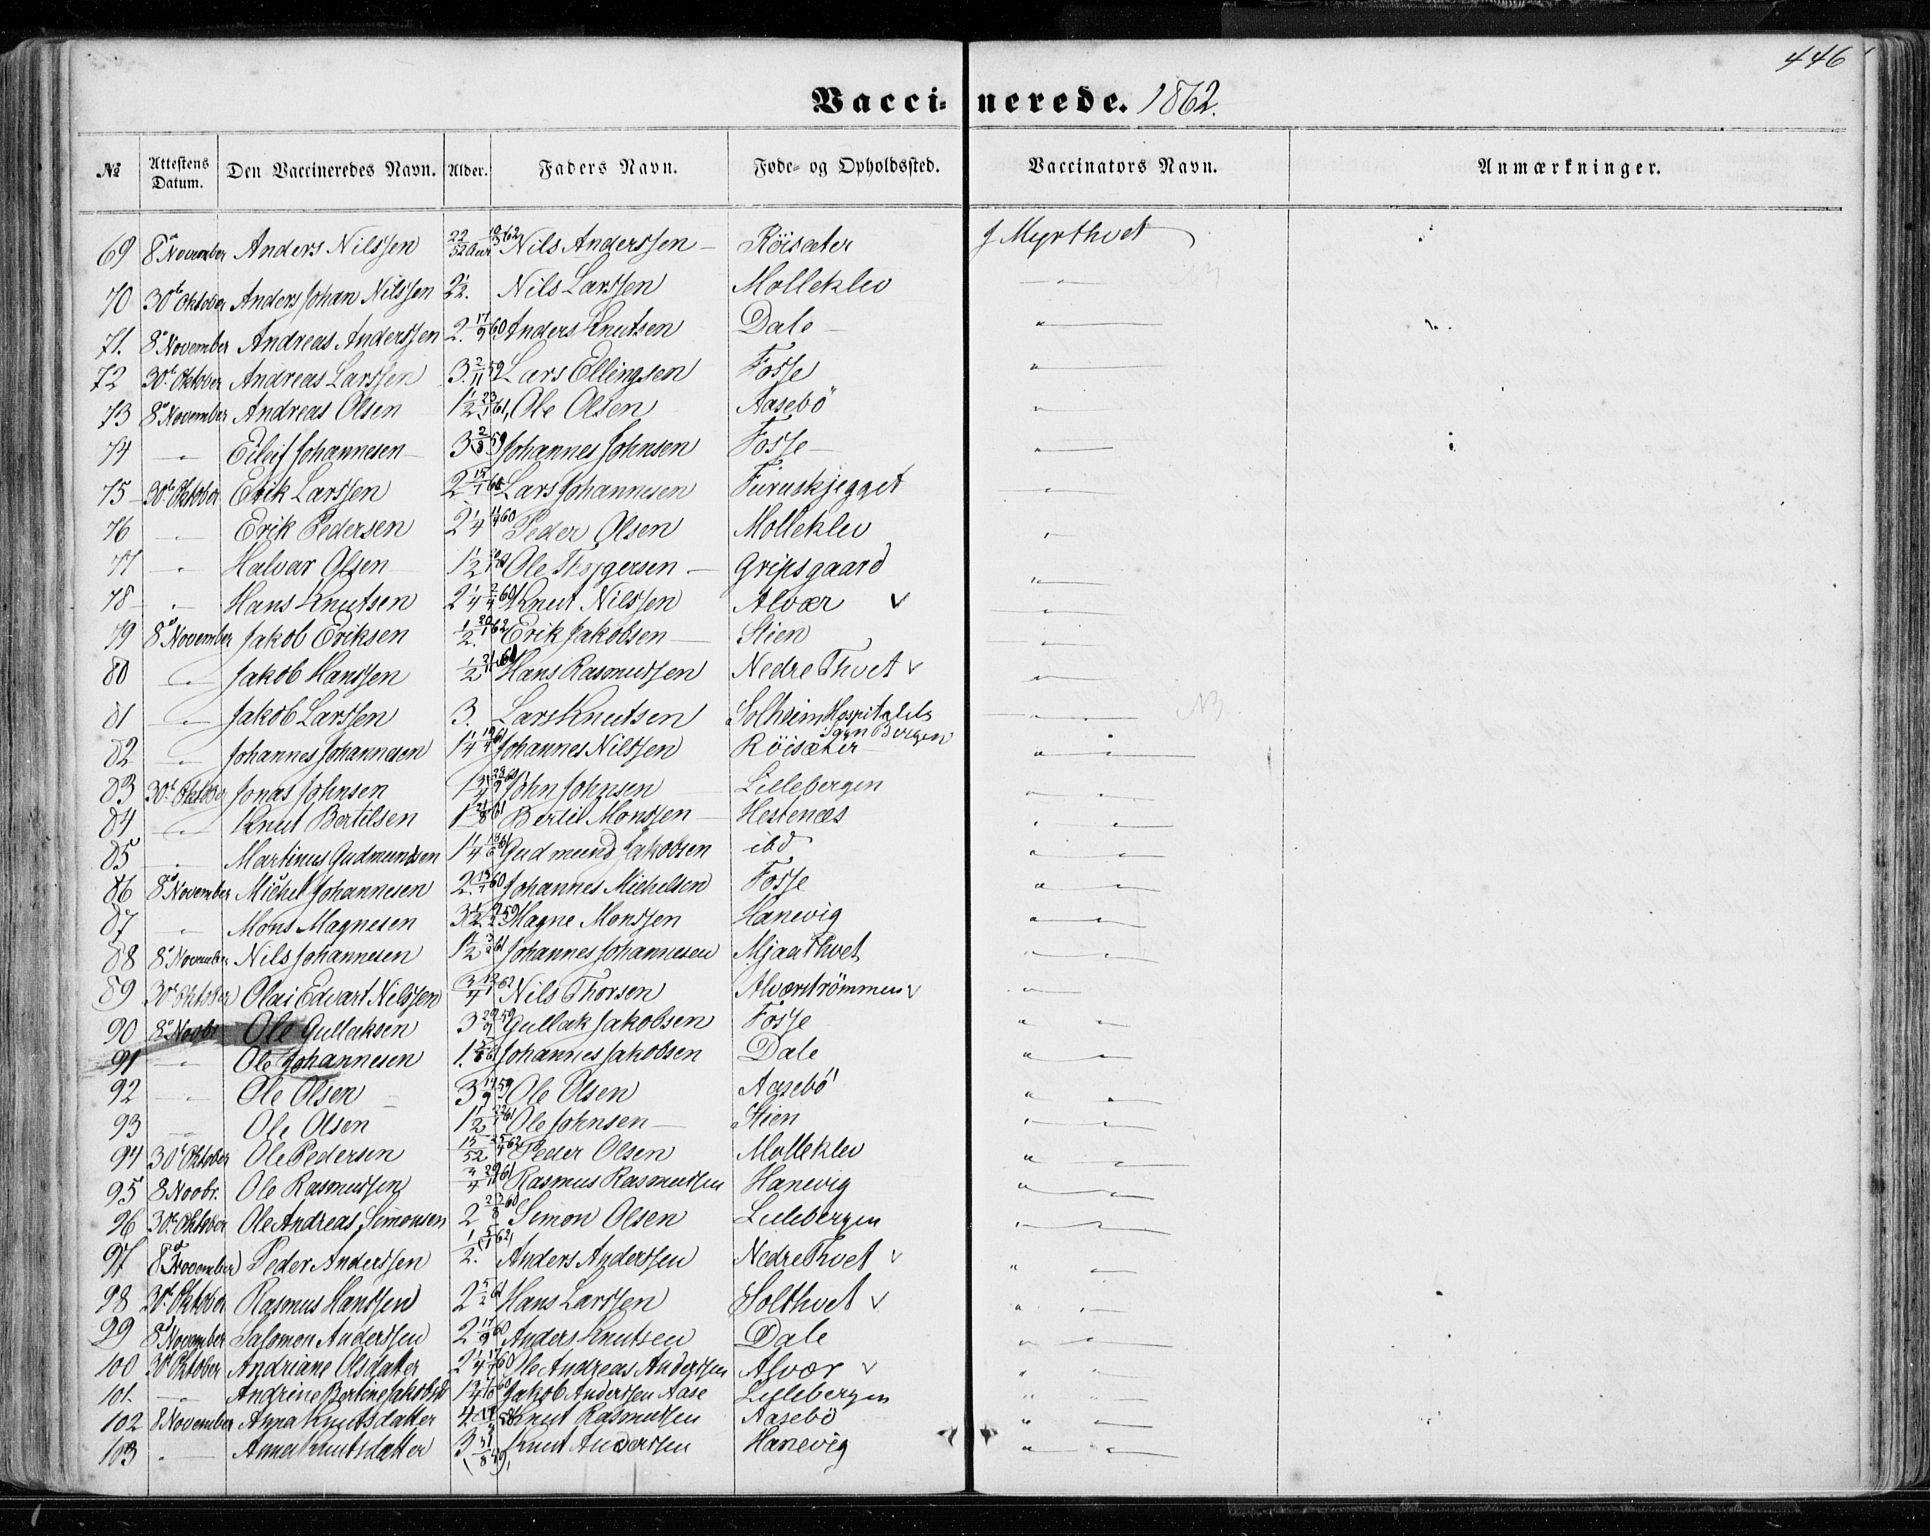 446
Vaccinerede. 1862.
№ Attestens Datum. Den Vaccineredes Navn. Alder. Faders Navn. Føde- og Opholdssted. Vaccinators Navn. Anmærkninger.
69 8de November Anders Nilssen 22/52 Aar Nils Anderssen Röisæter J Myrthvet
70 30te Oktober Anders Johan Nilssen 2½. Nils Larssen Molleklev
71. 8de November Andreas Anderssen 2. 17/9 60 Anders Knutsen Dale
72 30te Oktober Andreas Larssen 3. 2/11 59 Lars Ellingsen Fosse
73 8de November Andreas Olsen 1½ 23/1 61 Ole Olsen Aasebö
74 " Eileif Johannesen 3 2/8 59 Johannes Johnsen Fosse
75 30te Oktober Erik Larssen 2 15/1 60 Lars Johannesen Furuskjegget
76 " Erik Pedersen 2¼ 11/4 60 Peder Olsen Molleklev
77 " Halvar Olsen 1½ Ole Thygersen Gripsgaard
78 " Hans Knutsen 2¼ 2/4 60 Knut Nilssen Alvær v
79 8de November Jakob Eriksen ½. 20/1 62 Erik Jakobsen Stien
80 " Jakob Hanssen ½ Hans Rasmussen Nedre Thvet v
81 " Jakob Larssen 3. Lars Knutsen Solheim Hospitalets Sogn Bergen NB
82 " Johannes Johannesen 1¼ Johannes Nilssen Röisæter
83 30te Oktober Jonas Johnsen 1¾ John Johnsen Lillebergen
84 " Knut Bertilsen 1 21/8 61 Bertil Monssen Hestenæs
85 " Martinus Gudmundsen 1¼ Gudmund Jakobsen ibd
86 8de November Michel Johannesen 2. 15/1 60 Johannes Michelsen Fosse
87 " Mons Magnesen 3½ Magne Monssen Hanevig
88 8de November Nils Johannesen 1½ Johannes Johannesen Mjaathvet
89 30te Oktober Olai Edvart Nilssen ¾ 12/1 62 Nils Thorsen Alværströmmen v
90 8de Novbr Ole Gullaksen 3 29/9 59 Gullak Jakobsen Fosse
91 " Ole Johannesen 1. Johannes Jakobsen Dale
92 " Ole Olsen 3 14/9 59 Ole Olsen Aasebö
93 " Ole Olsen 1½ Ole Johnsen Stien
94 30te Oktober Ole Pedersen 15/52 25/4 62 Peder Olsen Molleklev
95 8 Novbr. Ole Rasmussen ¾ 29/11 61 Rasmus Rasmussen Hanevig
96 30te Oktober Ole Andreas Simonsen 2 23/8 60 Simon Olsen Lillebergen
97 8de November Peder Anderssen ½. (5/1 62) Anders Anderssen Nedre Thvet v
98 30te Oktober Rasmus Hanssen 2 Hans Larssen Solthvet v
99 8de November Salomon Anderssen 2 17/9 60 Anders Knutsen Dale
100 30te Oktober Andriane Olsdatter 2¼ Ole Andreas Anderssen Alvær v
101. " Andrine Bertine Jakobsd 1¾ Jakob Anderssen Aase Lillebergen
102 8 November Anna Knutsdatter 4 Knut Rasmussen Aasebö
103 " Anna Knutsdatter 3 Knut Anderssen Hanevig